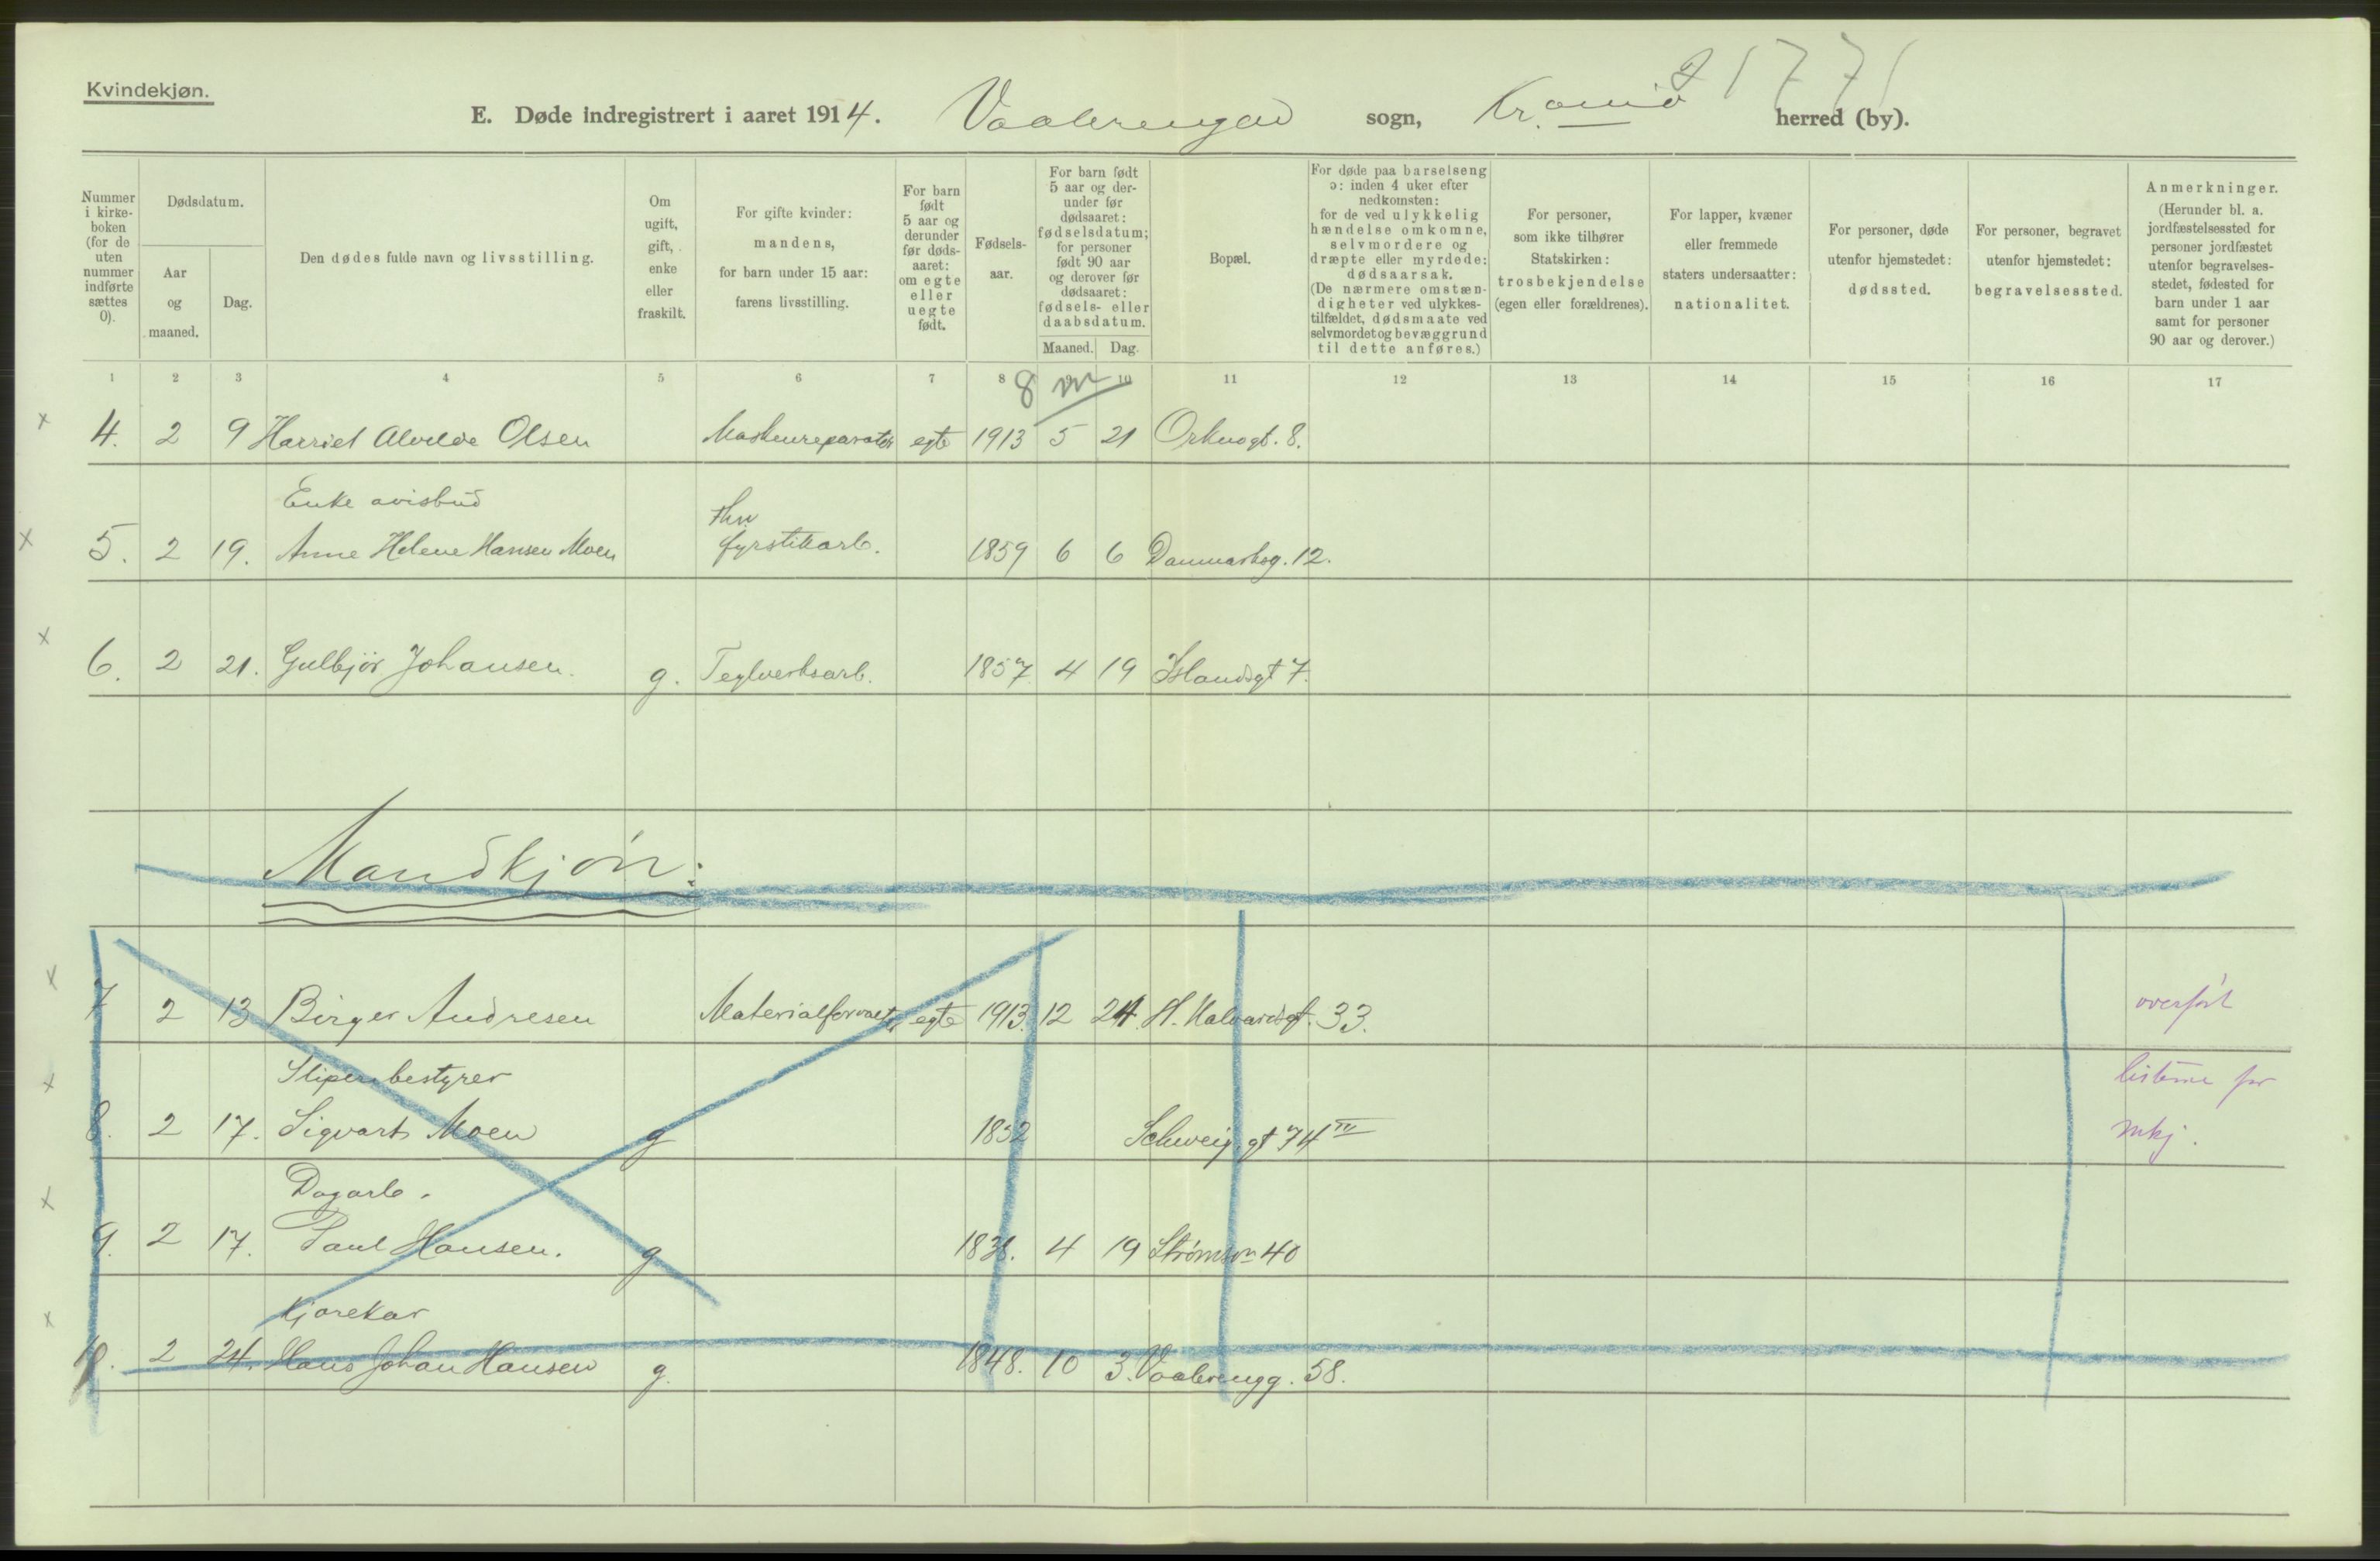 Kvindekjøn.
21771
E. Døde indregistrert i aaret 1914. Vaalerengen sogn, Kr.ania herred (by).
Nummer i kirke-boken (for de uten nummer indførte sættes 0).
Dødsdatum.
Aar og maaned.
Dag.
Den dødes fulde navn og livsstilling.
Om ugift, gift, enke eller fraskilt.
For gifte kvinder: mandens, for barn under 15 aar: farens livsstilling.
For barn født 5 aar og derunder før døds-aaret: om egte eller uegte født.
Fødsels-aar.
For barn født 5 aar og der-under før dødsaaret: fødselsdatum; for personer født 90 aar og derover før dødsaaret: fødsels- eller daabsdatum.
Maaned. Dag.
Bopæl.
For døde paa barselseng ɔ: inden 4 uker efter nedkomsten: for de ved ulykkelig hændelse omkomne, selvmordere og dræpte eller myrdede: dødsaarsak. (De nærmere omstæn-digheter ved ulykkes-tilfældet, dødsmaate ved selvmordet og bevæggrund til dette anføres.)
For personer, som ikke tilhører Statskirken: trosbekjendelse (egen eller forældrenes).
For lapper, kvæner eller fremmede staters undersaatter: nationalitet.
For personer, døde utenfor hjemstedet: dødssted.
For personer, begravet utenfor hjemstedet: begravelsessted.
Anmerkninger. (Herunder bl. a. jordfæstelsessted for personer jordfæstet utenfor begravelses-stedet, fødested for barn under 1 aar samt for personer 90 aar og derover.)
1 2 3 4 5 6 7 8 9 10 11 12 13 14 15 16 17
8 m
x 4. 2 9 Harriet Alvilde Olsen Maskinreparatør egte 1913 5 21 Orknøgt. 8.
Enke avisbud
x 5. 2 19. Anne Helene Hansen Moen fyrstikarb. 1859 6 6 Danmarksg. 12.
x 6. 2 21. Gulbjør Johansen. g. Teglverksarb. 1857 4 19 Islandsgt 7.
Mandkjøn:
x 7 2 13 Birger Andresen Materialforvalt. egte 1913. 12 24. H. Halvardsgt. 33. overført
Sliperibestyrer listerne for
x 8. 2 17. Sigvart Moen g 1852 Schweig.gt 74 III mkj.
Dagarb.
x 9. 2 17. Paul Hansen. g 1838. 4 19 Strømsvn 40
Kjørekar
x 10. 2 24. Hans Johan Hansen g. 1848. 10 3. Vaalerengg. 58.